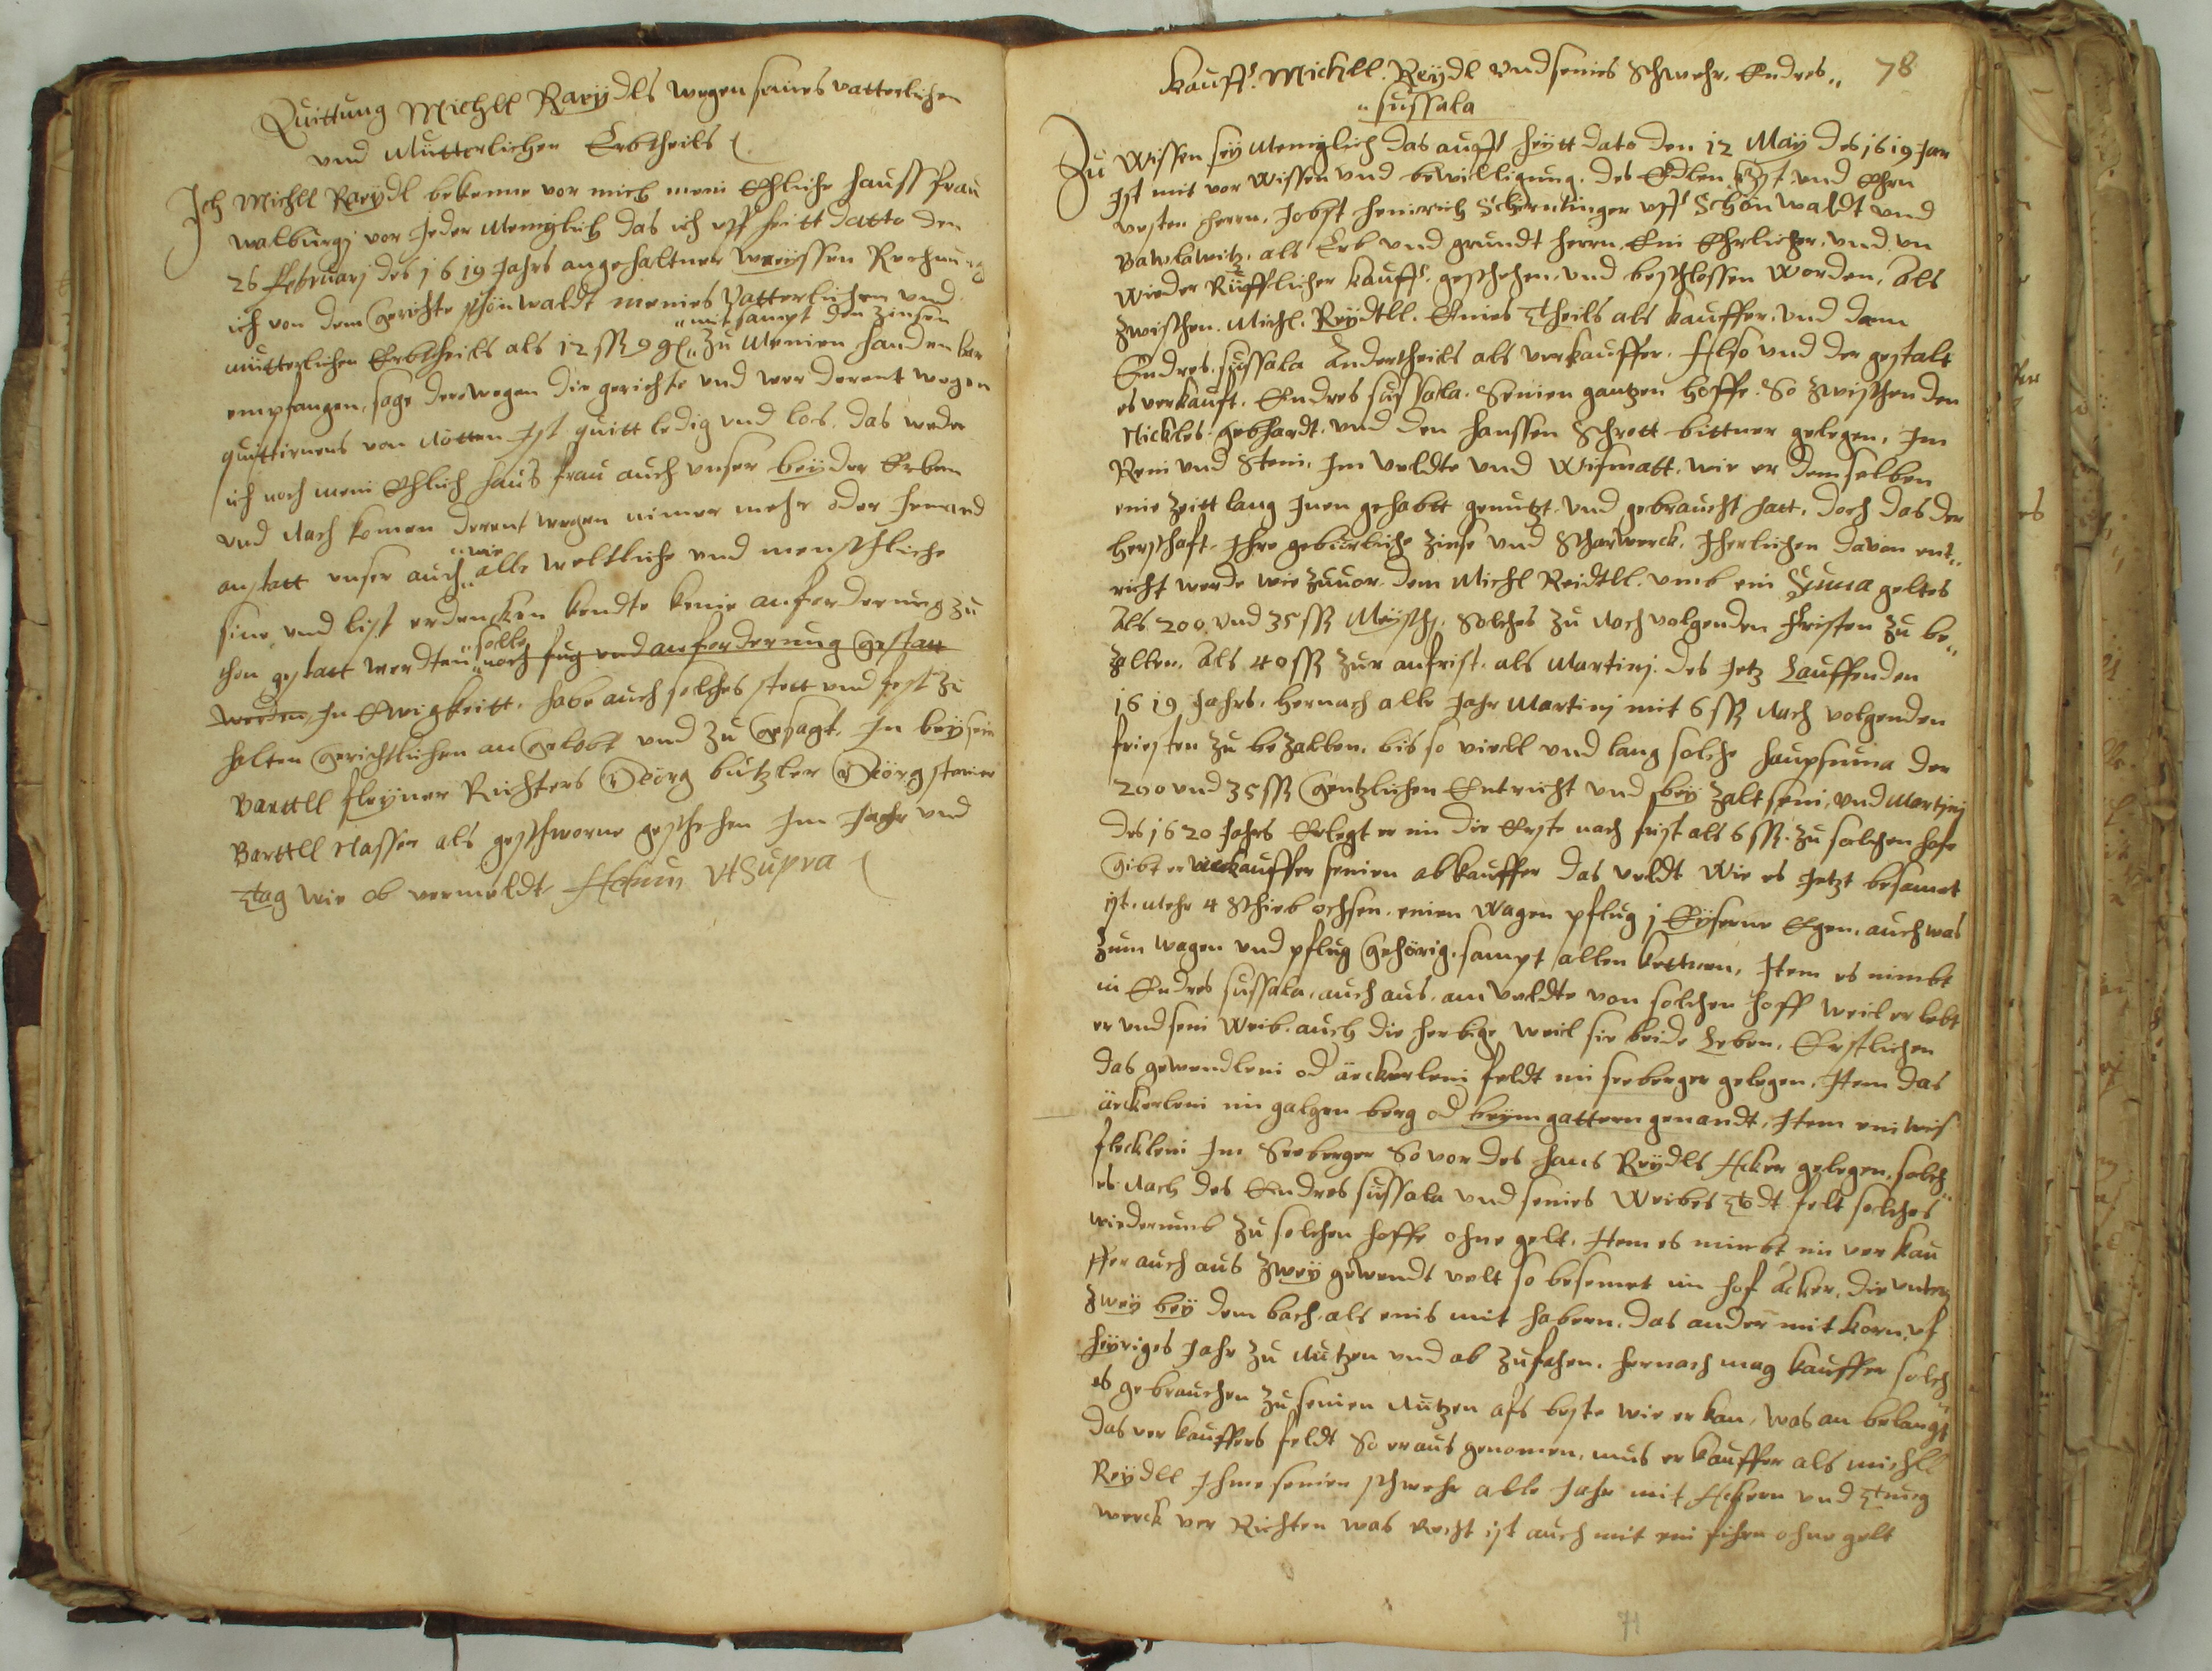 Quittung Michell Raeydls wegen seines vatterlichen
vnd Mutterlichen Erbtheils
Ich Michll Raeydl bekenne vor mich mein Ehliche hauss frau
walburgj vor Jeder Meniglich das ich vff heitt datto den
26 februarj des 1619 Jahrs angehaltner weyssen Rechnung
ich von dem Gerichte schönwaldt meines Vatterlichen vnd
"mit sampt den Zinsen
mutterlichen Erbtheils als 12 ßß 9 gl "zu Meinen handen bar
empfangen, sage derowegen die gerichte vnd wer derent wegen
quittirnens von Nötten Ist quitt ledig vnd los, das weder
ich noch mein Ehlich haus frau auch vnser beyder Erben
vnd Nach komen derent wegen nimer mehr oder Jemand
"wie
anstatt vnser auch "alle weltliche vnd menschliche
sine vnd list erdencken kendte keine anforderung zu
"solle
thon gestatt werdten "noch fug vnd anforderung gestatt
werden, In Ewigkeitt, habe auch solches stett vnd fest zu
halten Gerichtlichen an Gelobt vnd zu Gesagt, In beysein
Barttll fleyner Richters Georg butzler Georg steiner
Barttll Nasser als geschworne geschehen Im Jahr vnd
tag wie ob vermeldt Actum Vt Supra
78
Kauff. Michell. Reydl vnd seines Schwehr. Endres "
"sussala
Zu Wissen sey Meniglich das auff heytt dato den 12 May des 1619 Jar
Ist mit vor wissen vnd bewilligung. des Edlen vnd Ehrn
vesten herrn. Jobst heinrich Schirntinger vff Schönwaldt vnd
Bawlawitz, als Erb vnd grundt herrn. Ein Ehrlicher. vnd vn
wieder Rufflicher kauff. geschehen. vnd beschlossen worden, Als
zwischen. Michl. Reydtll. Eines theils als kauffer. vnd dann
Endres. sussala Andertheils als verkauffer. Also vnd der gestalt
es verkauft. Endres sussala. Seinen gantzen hoffe. So zwischen den
Nickles gebhardt. vnd den hanssen Schrott bittner gelegen, Im
Rein vnd Stein, Im veldte vnd Wismatt. wie er demselben
eine zeitt lang Inen gehabtt genutzt, vnd gebraucht hatt, doch das der
herschaft. Ihre gebürliche zinse vnd Scharwerck, Iherlichen davon ent"
richt werde wie zuuor. dem Michl Reidtll. vmb ein Suma geltes
Als 200 vnd 35 ßß Meysch, Solches zu Noch volgenden fristen zu be"
zallen, Als 40 ßß zur anfrist. als Martinj. des Jetz Lauffenden
1619 Jahrs. hernach alle Jahr Martinj mit 6 ßß Nach volgenden
fristen zu bezallen, bis so viell vnd lang solche haupsuma der
200 vnd 35 ßß Gentzlichen Entricht vnd bey zalt sein, vnd Martinj
des 1620 Jahrs Erlegt er im die Erste nach frist als 6 ßß. zu solchen hofe
Gibt er verkauffer seinen abkauffer das veldt wie es Jetzt besamet
ist. Mehr 4 Schieb ochsen, einen Wagen pflug 1 Eyserne Egen, auch was
zum wagen vnd pflug Gehörig. sampt allen kettnen, Item es nimbt
im Endres sussala, auch aus, am veldte von solchen hoff weil er lebt
er vnd sein Weib. auch die herbige weil sie beide Leben, Erstlichen
das gewendlein od äeckerlein feldt im seeberger gelegen, Item das
äckerlein im galgen berg od beym gattern genandt, Item ein wis
flecklein Im Seeberger So vor des hans Reydls Acker gelegen, solch"
es Nach des Endres sussala vnd seines Weibes todt felt solches
wiederumb zu solchen hoffe ohne gelt. Item es nimbt im ver kau
ffer auch aus zwey gewendt velt so besemet im hof Acker, die vntern
zwey bey dem bach, als eins mit habern, das ander mit korn, vf
heyriges Jahr zu Nutzen vnd ab zufahen. hernach mag kauffer solch"
es gebrauchen zu seinen Nutzen afs beste wie er kan, was an belangt
das ver kauffers feldt So er aus genomen, mus er kauffer als michll
Reydll Ihme seinen schwehr alle Jahr mit Ackern vnd tung
werck ver Richten was Recht ist auch mit ein führn ohne gelt
71